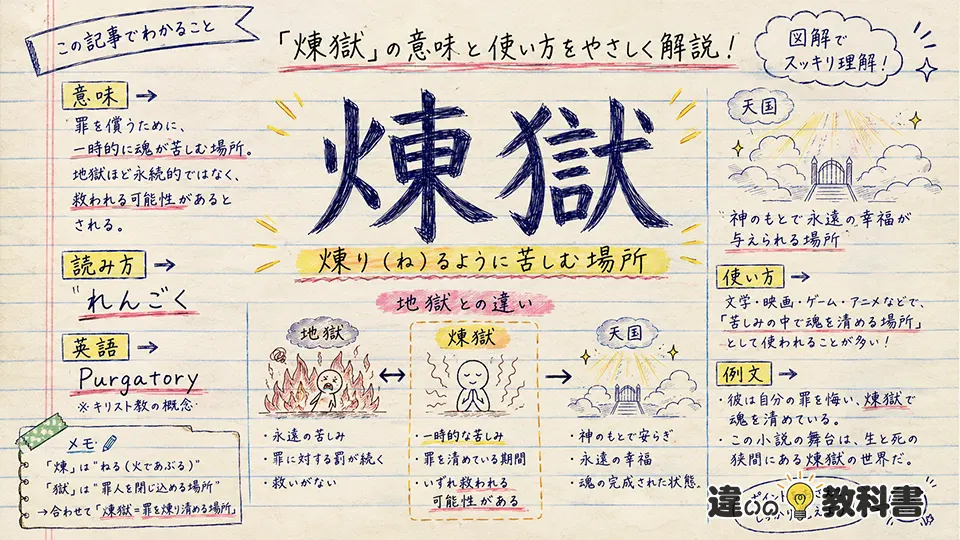 この記事でわかること
「煉獄」の意味と使い方をやさしく解説！
図解で
スッキリ理解！
意味
罪を償うために、
一時的に魂が苦しむ場所。
地獄ほど永続的ではなく、
救われる可能性があると
される。
読み方
れんごく
英語
Purgatory
※キリスト教の概念
メモ
「煉」は"ねる（火であぶる）"
「獄」は"罪人を閉じ込める場所"
→合わせて「煉獄=罪を煉り清める場所」
煉獄
煉り（ね）るように苦しむ場所
地獄との違い
地獄
・永遠の苦しみ
・罪に対する罰が続く
・救いがない
煉獄
・一時的な苦しみ
・罪を清めている期間
・いずれ救われる
可能性がある
天国
・神のもとで安らぎ
・永遠の幸福
・魂の完成された状態
天国
神のもとで永遠の幸福が
与えられる場所
使い方
文学・映画・ゲーム・アニメなどで、
「苦しみの中で魂を清める場所」
として使われることが多い！
例文
・彼は自分の罪を悔い、煉獄で
魂を清めている。
・この小説の舞台は、生と死の
狭間にある煉獄の世界だ。
違いの教科書